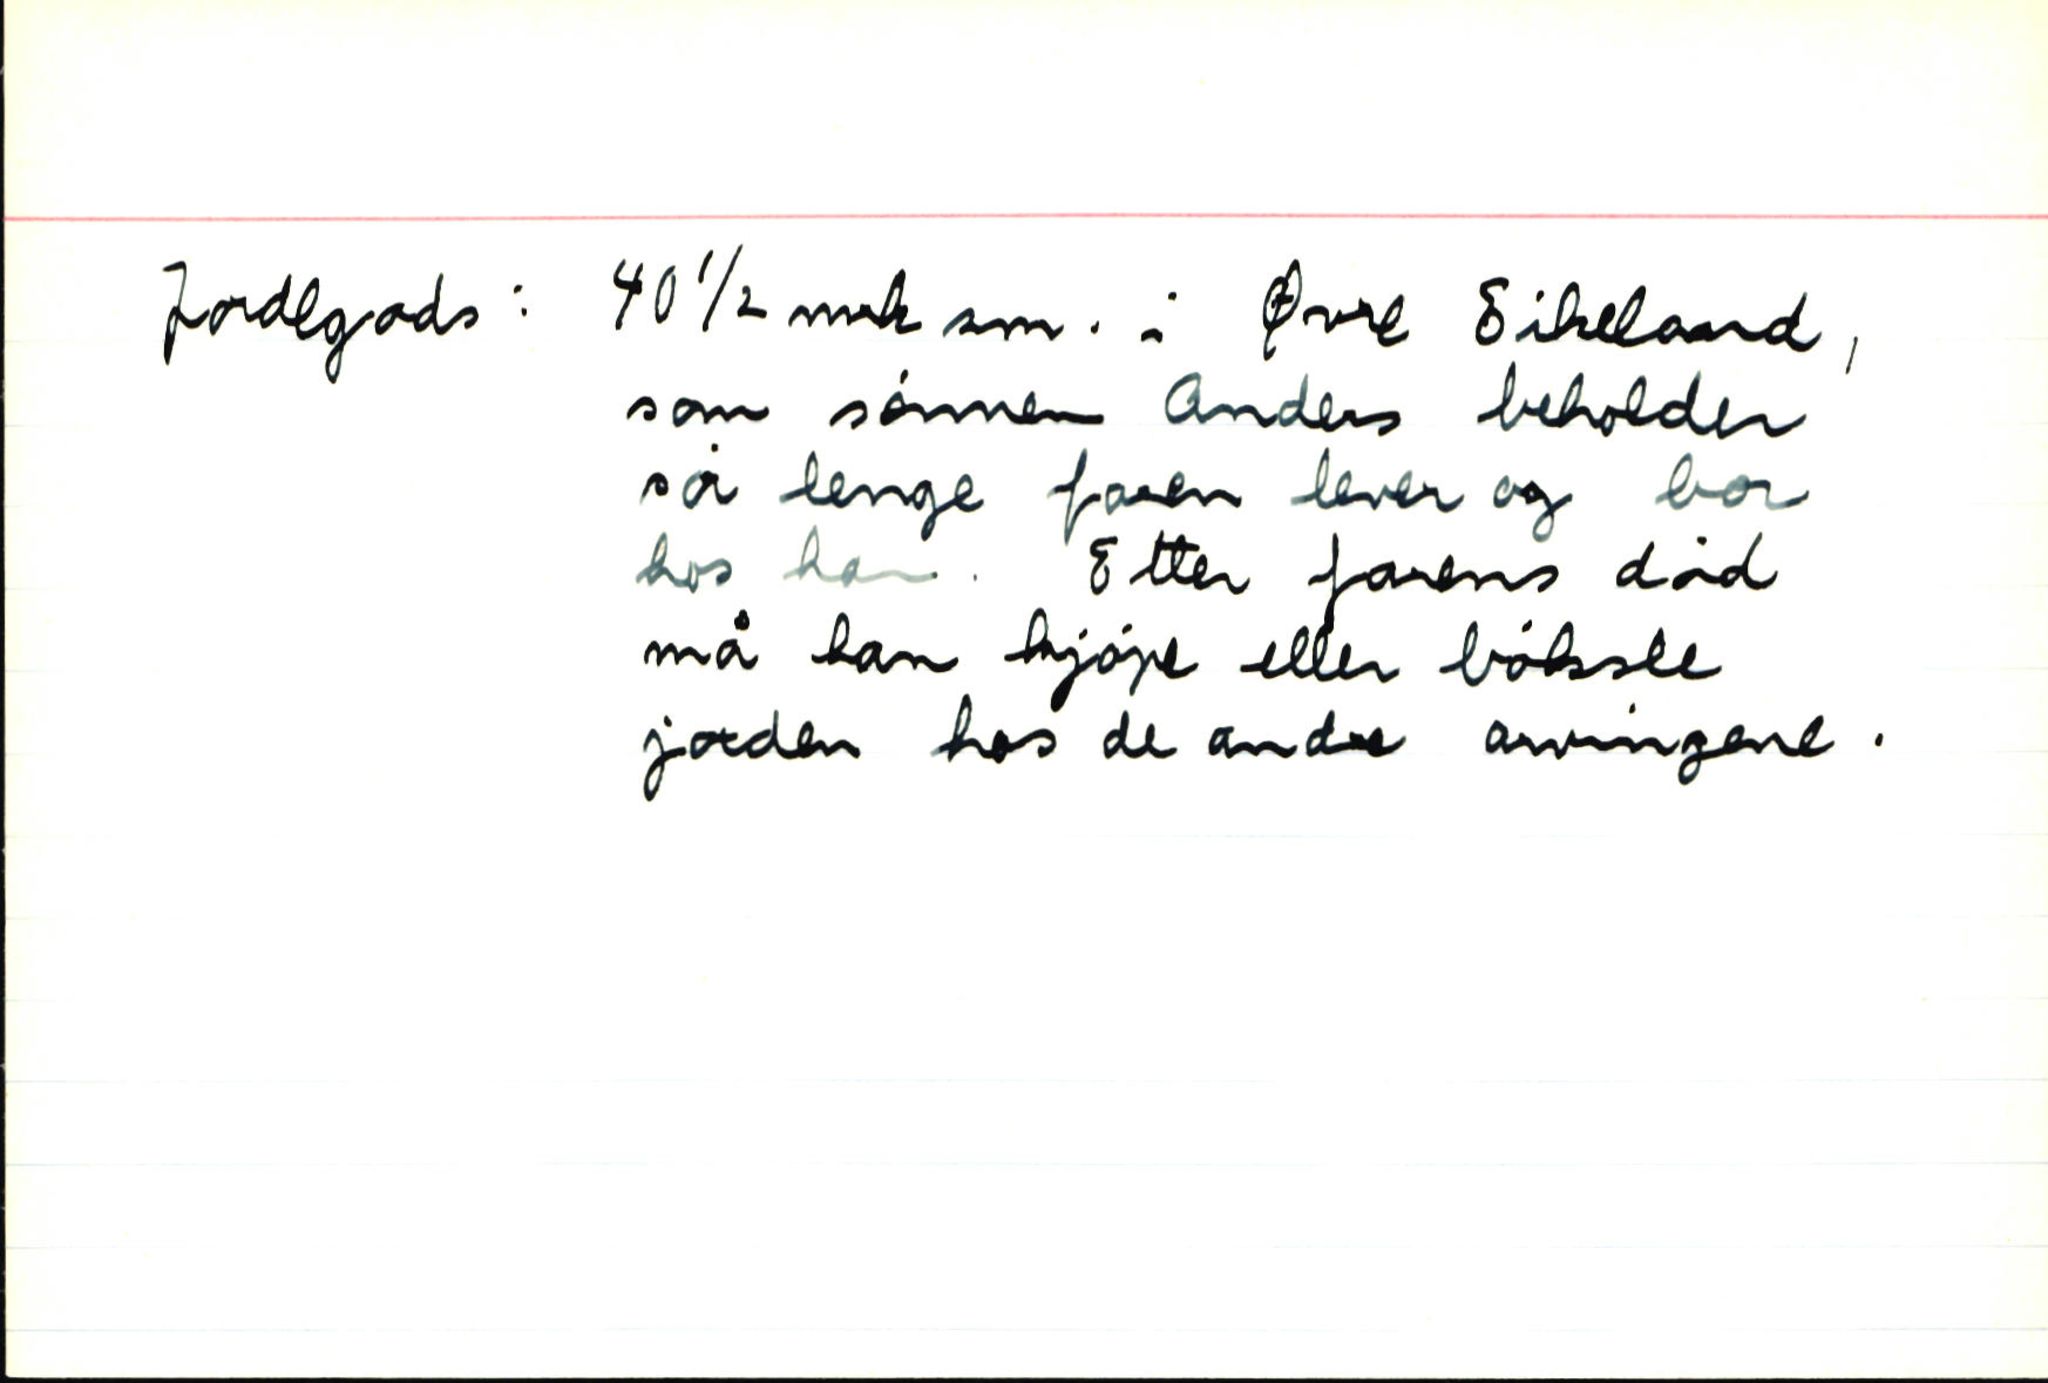 Jordegods: 40 1/2 mrk sm. i Øvre Eikeland,
som sønnen Anders beholder
så lenge faren lever og bor
hos han. Etter farens død
må han kjøpe eller bøksle
jorden hos de andre arvingene.